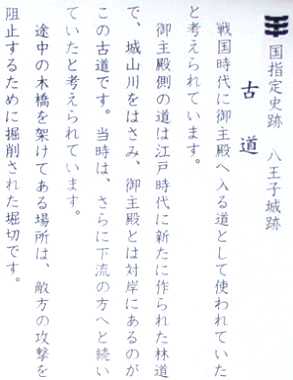 国指定史跡　八王子城跡
古道
戦国時代に御主殿へ入る道として使われていた
と考えられています。
御主殿側の道は江戸時代に新たに作られた林道
で、城山川をはさみ、御主殿とは対岸にあるのが
この古道です。当時は、さらに下流の方へと続い
ていたと考えられています。
途中の木橋を架けてある場所は、敵方の攻撃を
阻止するために掘削された堀切です。